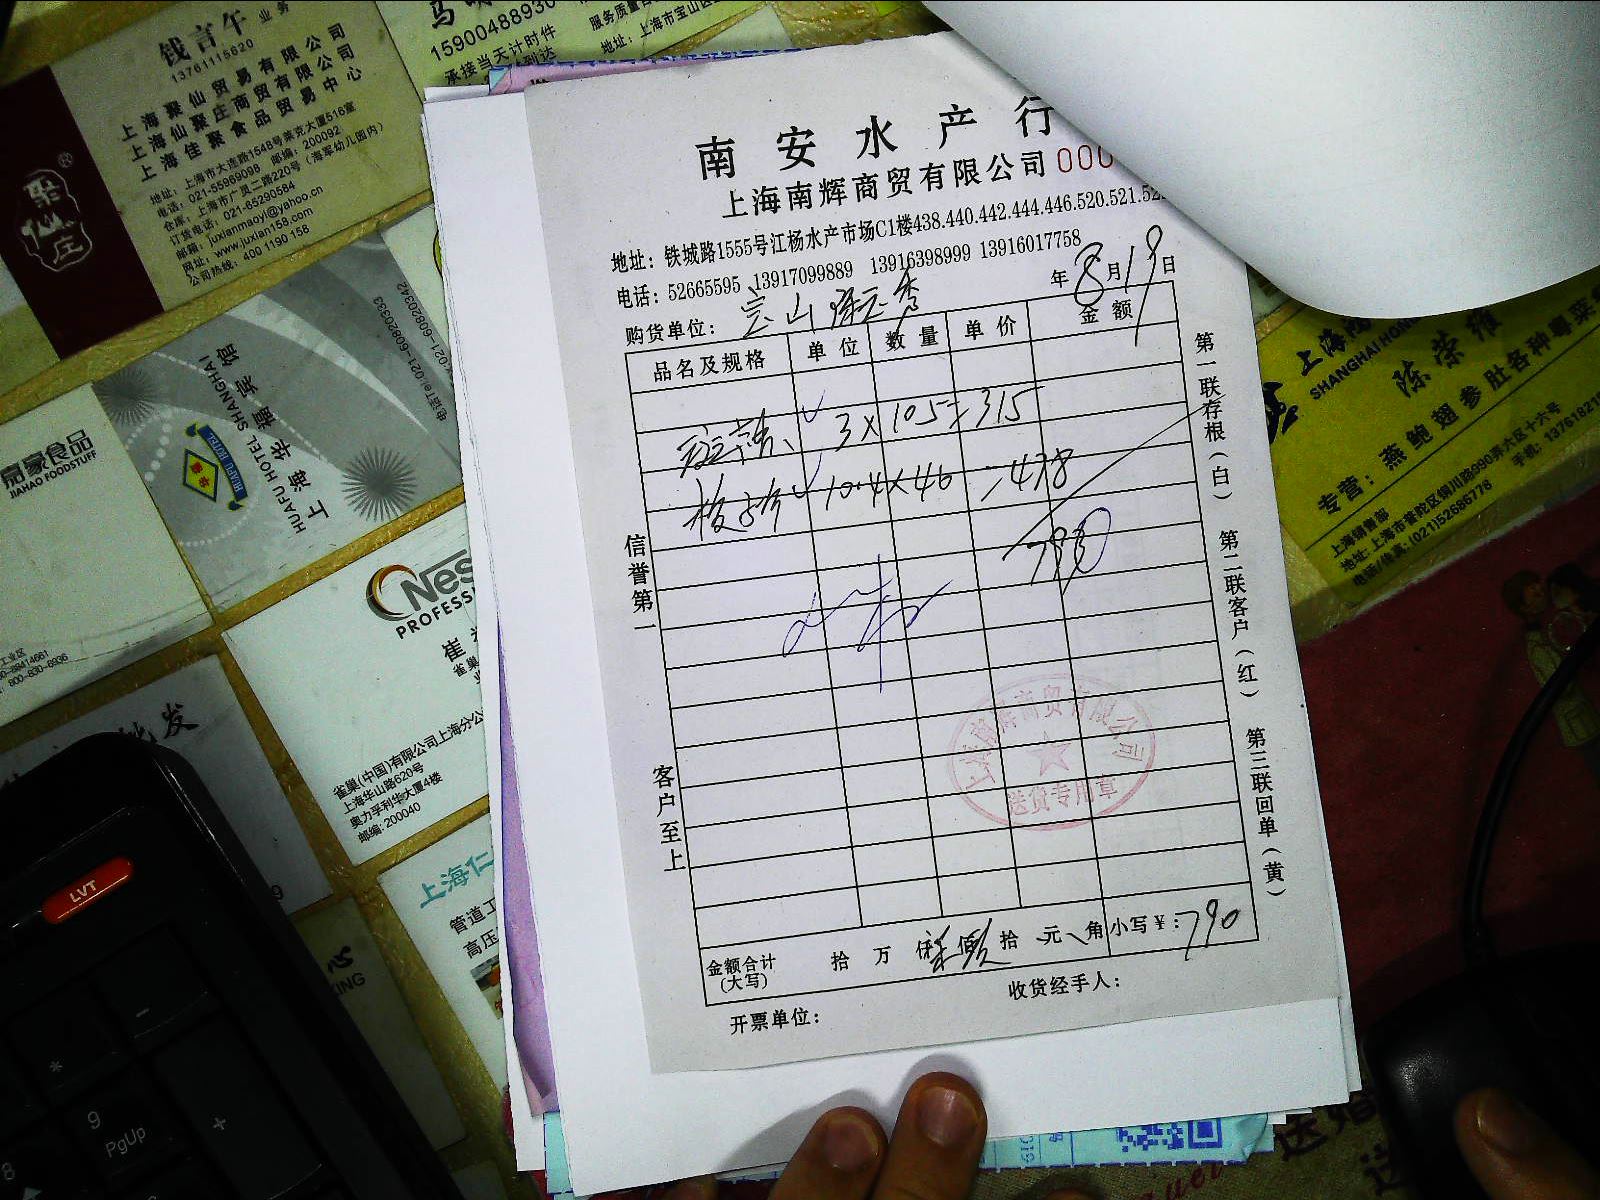 南安水产行
上海南辉商贸有限公司 000
地址：铁城路1555号江杨水产市场C1楼438.440.442.444.446.520.521.52
电话：52665595 13917099889 13916398999 13916017758
年8月19日
购货单位：
品名及规格 单位 数量 单价 金额
3×105=315
10.4×46=478
790
信誉第一
客户至上
第一联存根（白） 第二联客户（红） 第三联回单（黄）
上海南辉商贸有限公司
送货专用章
金额合计（大写） 拾 万 拾 元 角 小写￥：790
开票单位：
收货经手人：
钱言午 业务
13761115620
上海聚仙贸易有限公司
上海仙聚庄商贸有限公司
上海佳聚食品贸易中心
地址：上海市大连路1548号莱克大厦516室
电话：021-55969098 邮编：200092
仓库：上海市广灵二路220号（海军幼儿园内）
订货电话：021-65290584
邮箱：juxianmaoyi@yahoo.cn
网址：www.juxian158.com
公司热线：400 1190 158
聚仙庄
15900488930
承接当天计时件
服务质量
地址：上海市宝山区
上海华馥宾馆
HUAFU HOTEL SHANGHAI
HUAFU HOTEL
嘉豪食品
JIAHAO FOODSTUFF
Nes
PROFESS
雀巢(中国)有限公司上海分公
上海华山路620号
奥力孚利华大厦4楼
邮编：200040
批发
上海仁
管道工
高压
心
KING
上海鸿
SHANGHAI HONG
陈荣雄
专营：燕鲍翅参肚各种粤菜
上海销售部
地址：上海市普陀区铜川路990弄六区十六号
电话/传真：(021)52686778
手机：137618218
LVT
9
PgUp
8
*
-
+